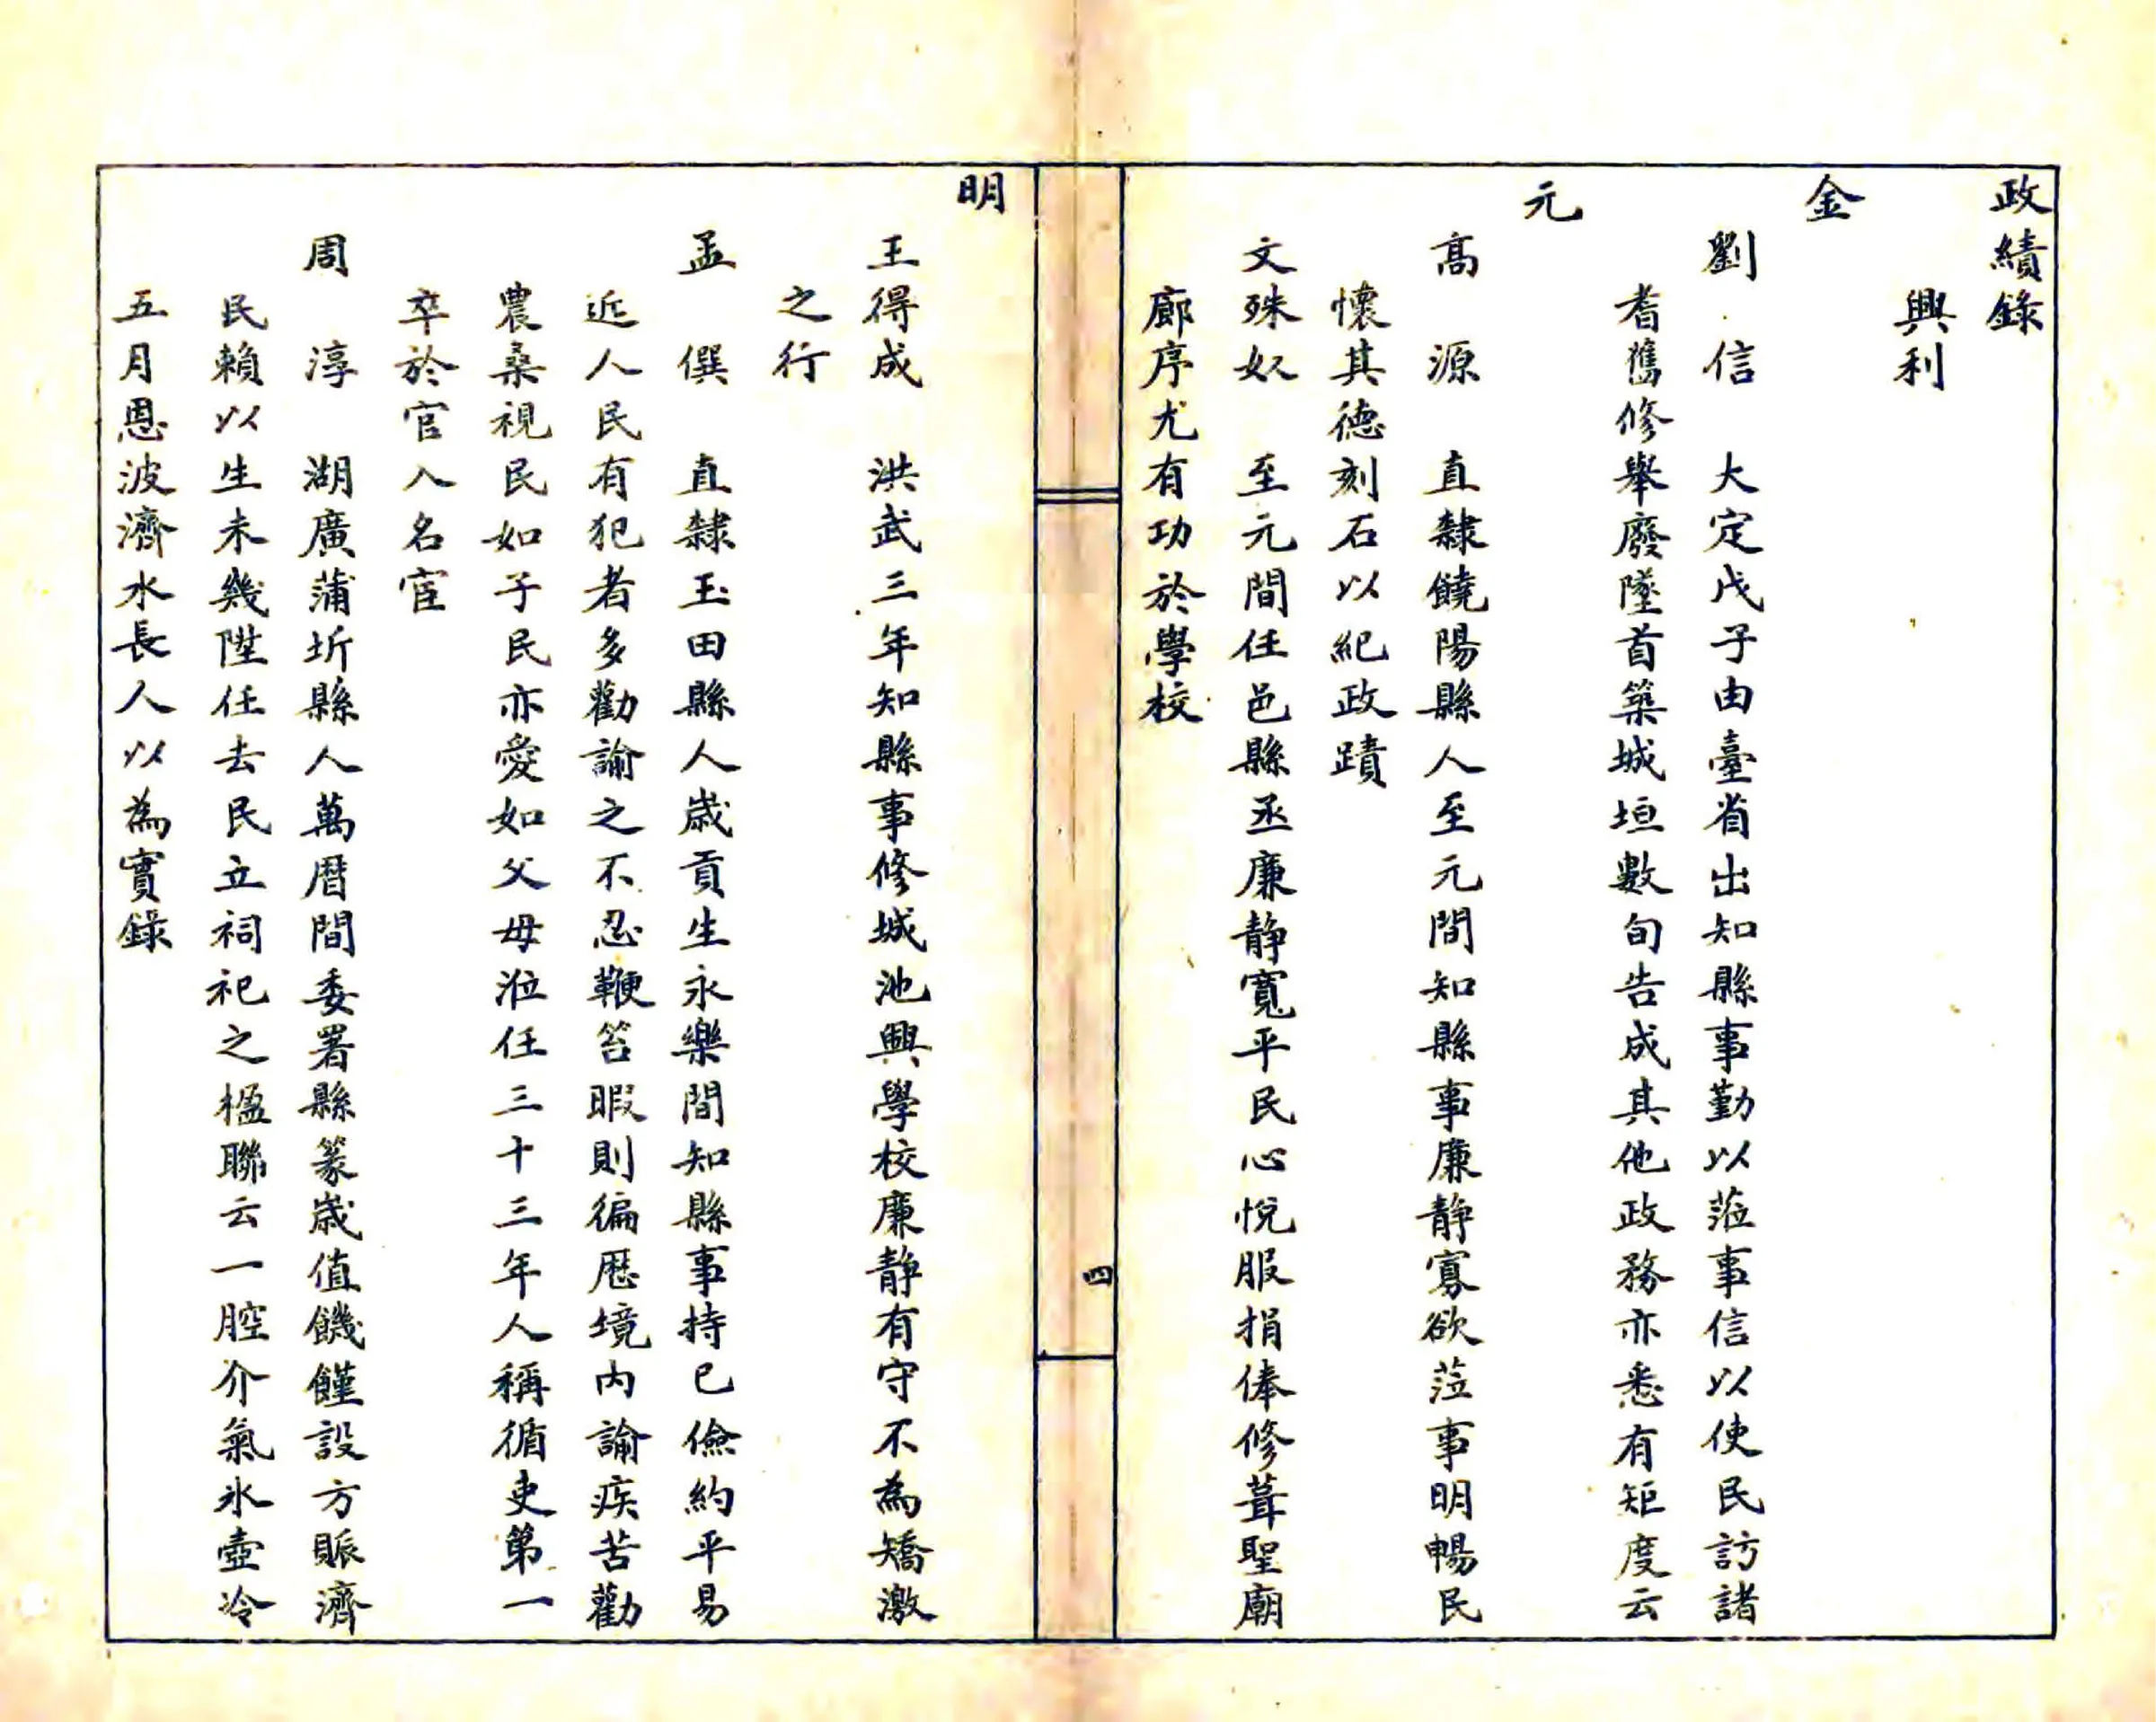 政績錄
興利
金
劉信　大定戊子由臺省出知縣事勤以蒞事信以使民訪諸
耆舊修舉廢墜首築城垣數旬告成其他政務亦悉有矩度云
元
高源　直隸饒陽縣人至元間知縣事廉静寡欲蒞事明暢民
懷其德刻石以紀政蹟
文殊奴　至元間任邑縣丞廉静寬平民心悅服捐俸修葺聖廟
廊序尤有功於學校
四
明
王得成　洪武三年知縣事修城池興學校廉静有守不為矯激
之行
孟僎　直隸玉田縣人歲貢生永樂間知縣事持已儉約平易
近人民有犯者多勸諭之不忍鞭笞暇則徧歷境内諭疾苦勸
農桑視民如子民亦愛如父母涖任三十三年人稱循吏第一
卒於官入名宦
周淳　湖廣蒲圻縣人萬曆間委署縣篆歲值饑饉設方賑濟
民賴以生未幾陞任去民立祠祀之楹聯云一腔介氣氷壺冷
五月恩波濟水長人以為實錄